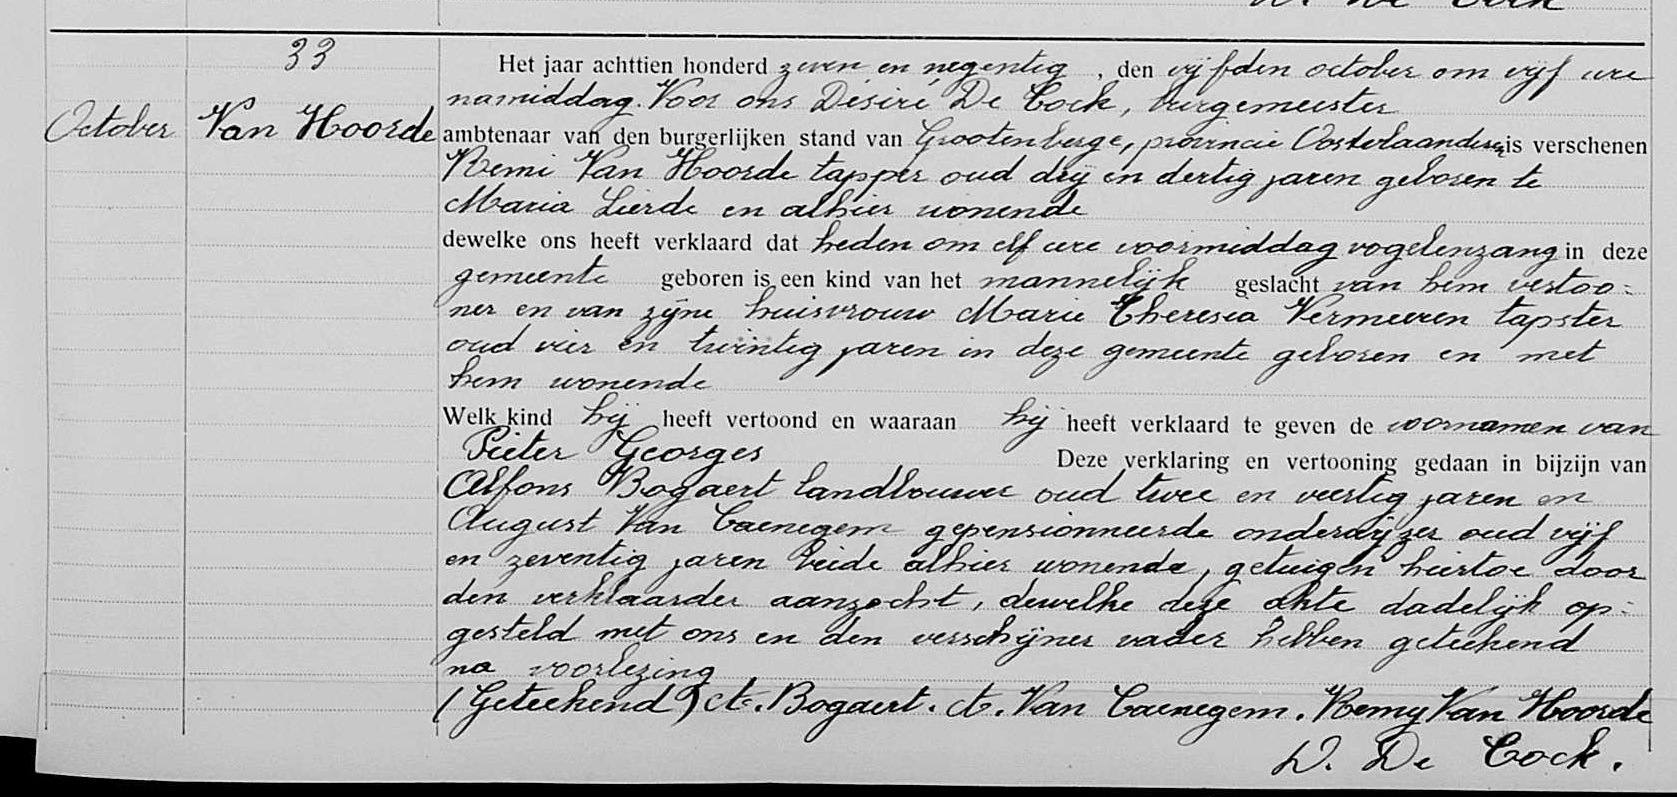 33
October Van Hoorde
Het jaar achttien honderd zeven en negentig, den vijfden october om vijf ure
namiddag. Voor ons Désiré De Cock, burgemeester
ambtenaar van den burgerlijken stand van Grootenberge, provincie Oostvlaanderen, is verschenen
Remi Van Hoorde tapper oud drij en dertig jaren geboren te
Maria Lierde en alhier wonende
dewelke ons heeft verklaard dat heden om elf ure voormiddag vogelenzang in deze
gemeente geboren is een kind van het mannelijk geslacht van hem vertoo-
ner en van zijne huisvrouw Marie Theresia Vermeeren tapster
oud vier en twintig jaren in deze gemeente geboren en met
hem wonende
Welk kind hij heeft vertoond en waaraan hij heeft verklaard te geven de voornamen van
Pieter Georges Deze verklaring en vertooning gedaan in bijzijn van
Alfons Bogaert landbouwer oud twee en veertig jaren en
August Van Caenegem gepensionneerde onderwijzer oud vijf
en zeventig jaren beide alhier wonende, getuigen hiertoe door
den verklaarder aanzocht, dewelke deze akte dadelijk op-
gesteld met ons en den verschijner vader hebben geteekend
na voorlezing
(Geteekend) A. Bogaert. A. Van Caenegem. Remy Van Hoorde
D. De Cock.